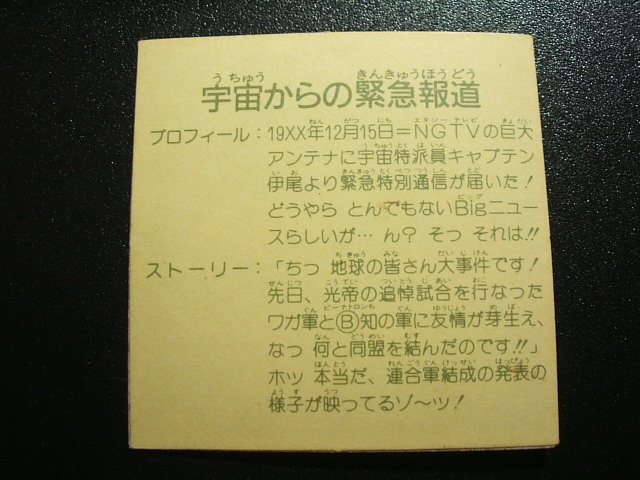 宇宙からの緊急報道
プロフィール：19XX年12月15日＝NGTVの巨大
アンテナに宇宙特派員キャプテン
伊尾より緊急特別通信が届いた！
どうやら とんでもないBigニュー
スらしいが… ん？ そっ それは!!
ストーリー：「ちっ 地球の皆さん大事件です！
先日、光帝の追悼試合を行なった
ワガ軍とⒷ知の軍に友情が芽生え、
なっ 何と同盟を結んだのです!!」
ホッ 本当だ、連合軍結成の発表の
様子が映ってるゾ〜ッ！